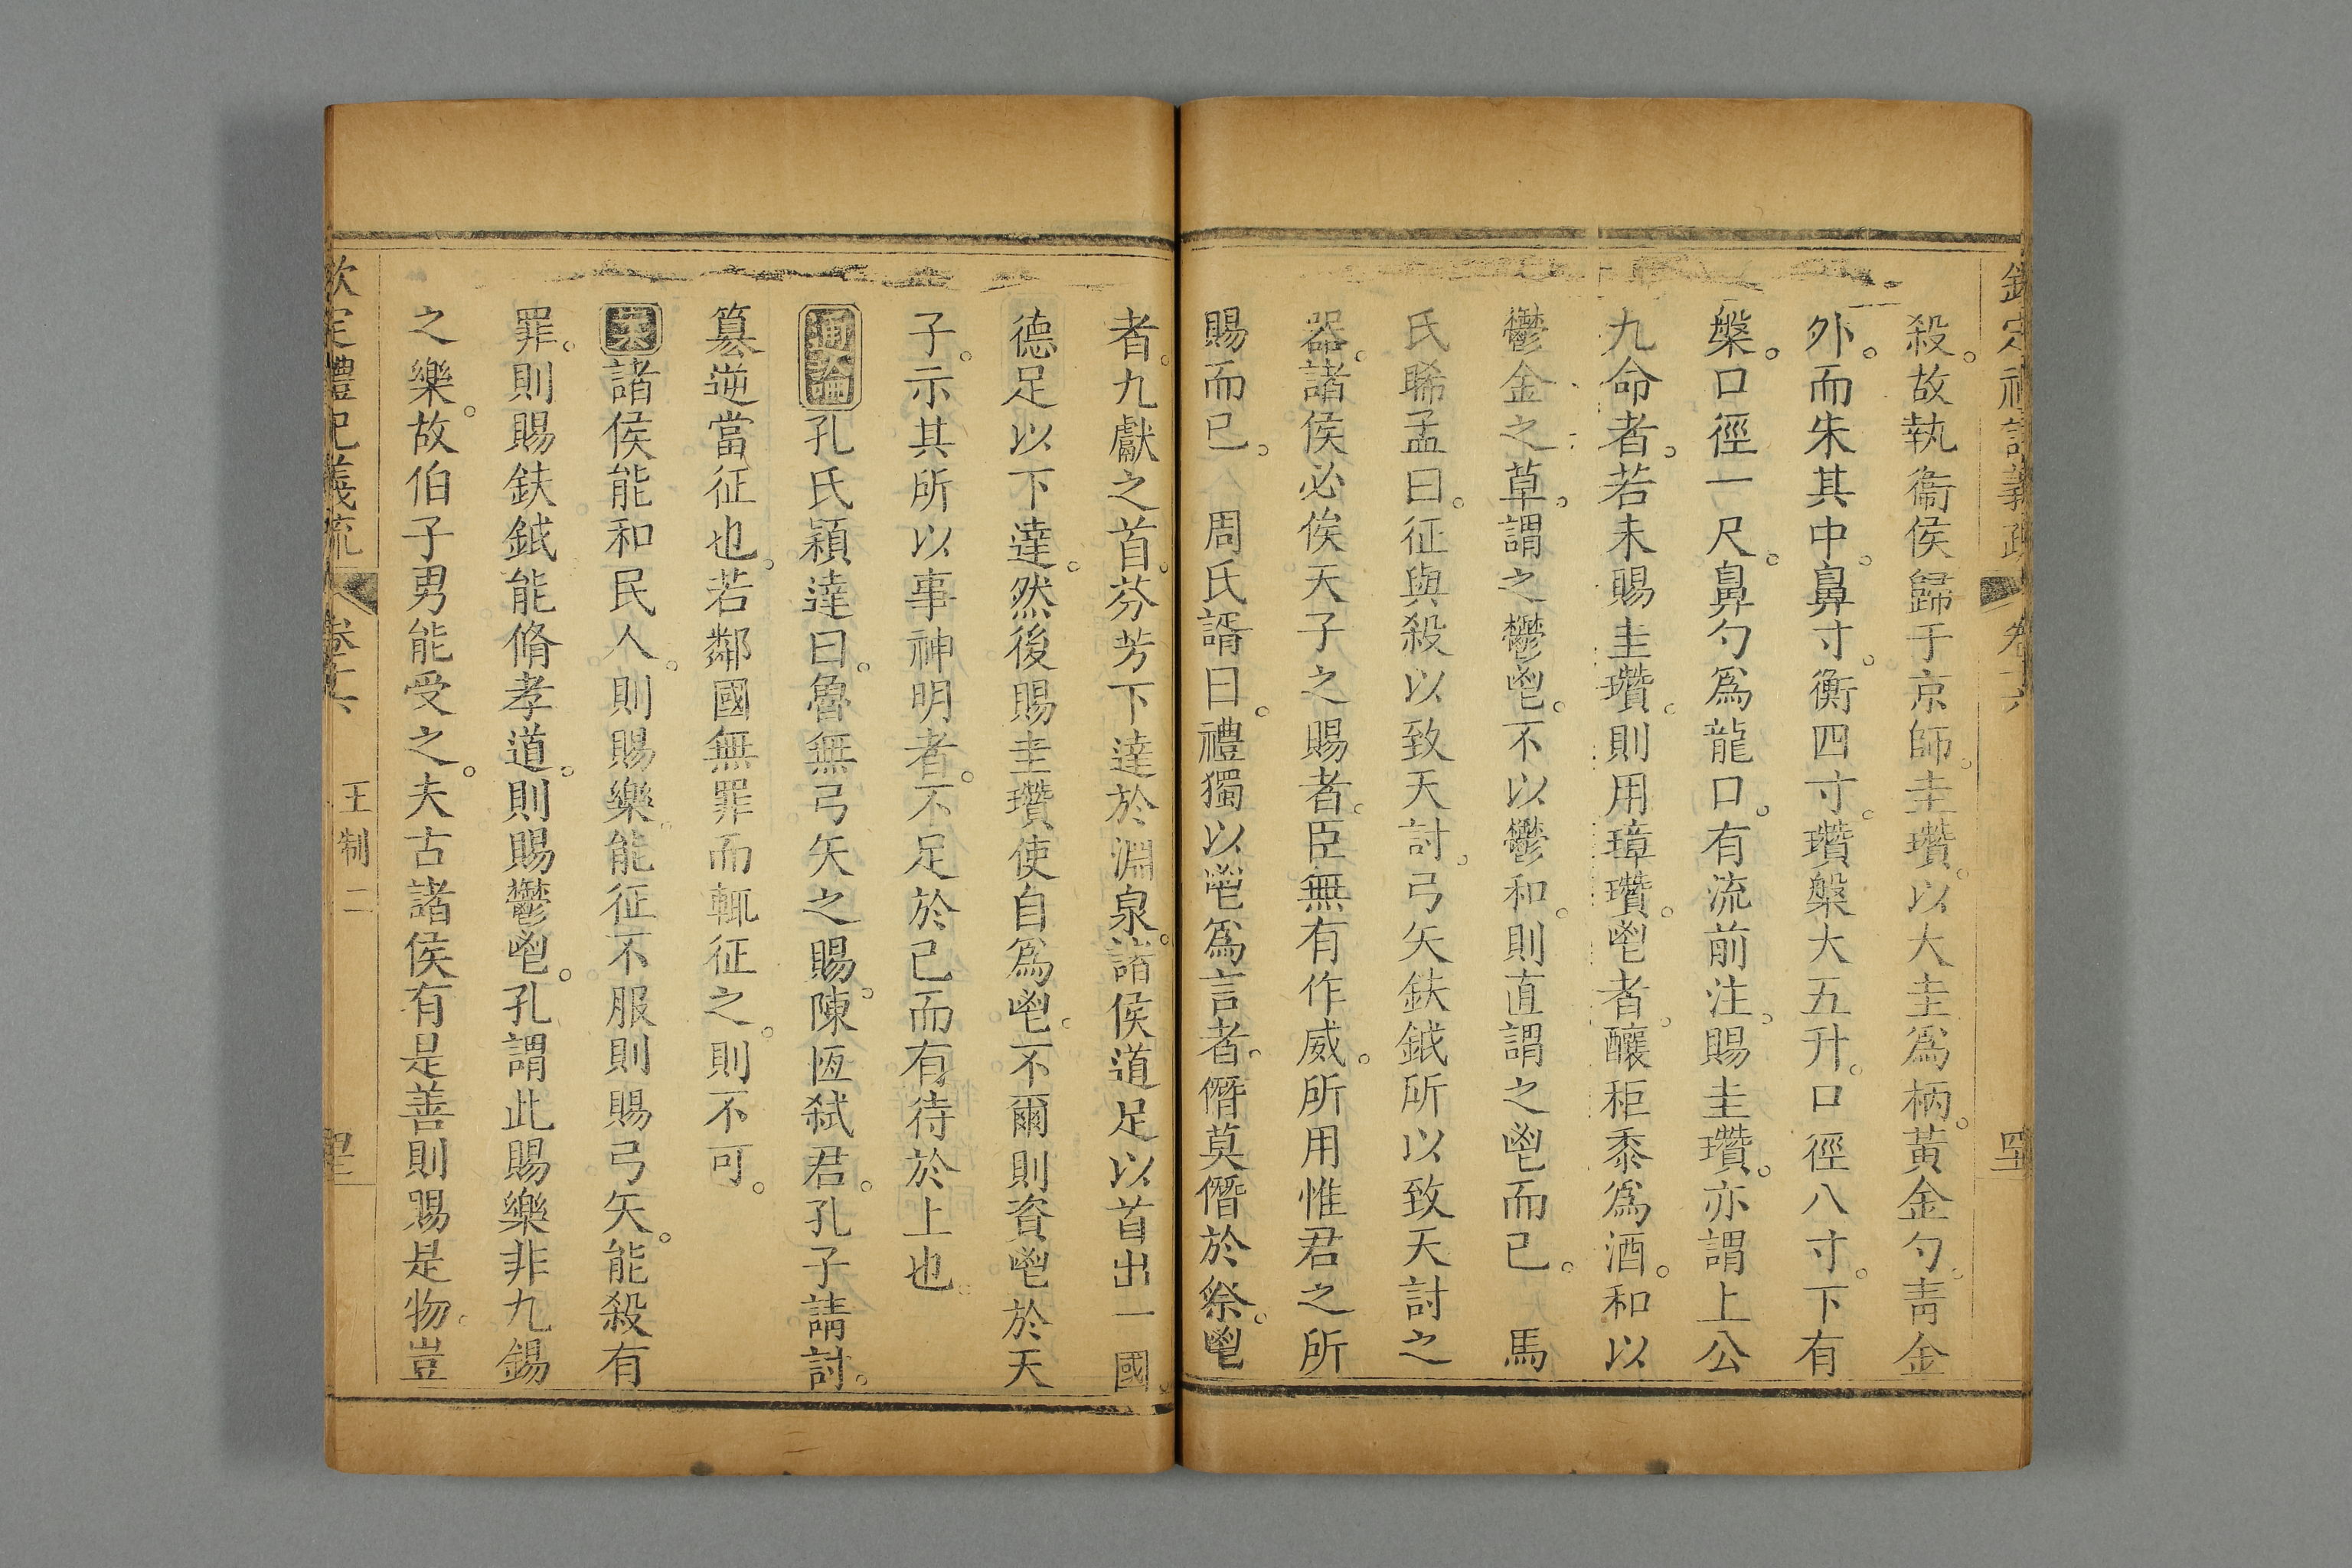 欽定禮記義疏 卷十六
殺。故執衞侯歸于京師。圭瓚。以大圭爲柄。黃金勺。靑金
外。而朱其中。鼻寸。衡四寸。瓚槃大五升。口徑八寸。下有
槃。口徑一尺。鼻勺爲龍口。有流前注。賜圭瓚。亦謂上公
九命者。若未賜圭瓚。則用璋瓚。鬯者。釀秬黍爲酒。和以
鬱金之草。謂之鬱鬯。不以鬱和。則直謂之鬯而已。 馬
氏睎孟曰。征與殺以致天討。弓矢鈇鉞所以致天討之
器。諸侯必俟天子之賜者。臣無有作威。所用惟君之所
賜而已。 周氏諝曰。禮獨以鬯爲言者。僭莫僭於祭。鬯
者。九獻之首。芬芳下達於淵泉。諸侯道足以首出一國。
德足以下達。然後賜圭瓚使自爲鬯。不爾則資鬯於天
子。示其所以事神明者。不足於己而有待於上也。
通論孔氏穎達曰。魯無弓矢之賜。陳恆弑君。孔子請討。
篡逆當征也。若鄰國無罪而輒征之。則不可。
案諸侯能和民人。則賜樂。能征不服則賜弓矢。能殺有
罪。則賜鈇鉞。能脩孝道。則賜鬱鬯。孔謂此賜樂非九錫
之樂。故伯子男能受之。夫古諸侯有是善則賜是物。豈
欽定禮記義疏 卷十六 王制二